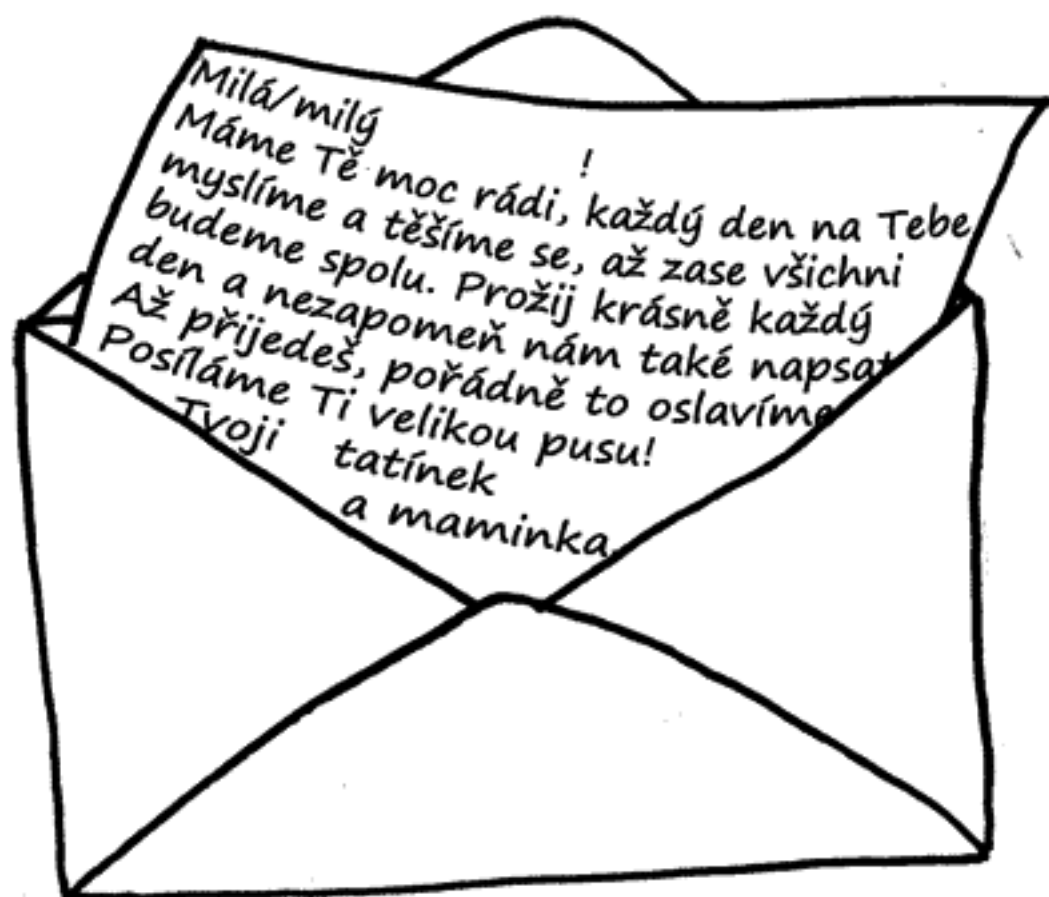 Milá/milý !
Máme Tě moc rádi, každý den na Tebe
myslíme a těšíme se, až zase všichni
budeme spolu. Prožij krásně každý
den a nezapomeň nám také napsat
Až přijedeš, pořádně to oslavíme
Posíláme Ti velikou pusu!
Tvoji tatínek
a maminka.